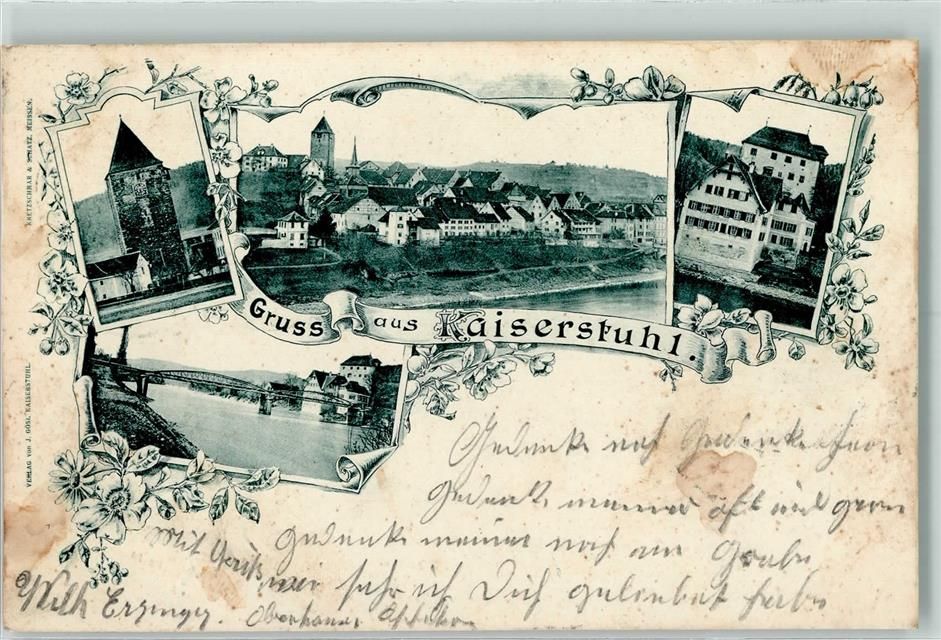 KRETZSCHMAR & SCHATZ, MEISSEN.
VERLAG von J. GÖSI, KAISERSTUHL.
Gruss aus Kaiserstuhl.
Gedenke nah Gedenke fern
Gedenke meiner oft und gern
Gedenke meiner noch am Grabe
wie sehr ich Dich geliebet habe
Mit Gruß
Wilh Erzinger